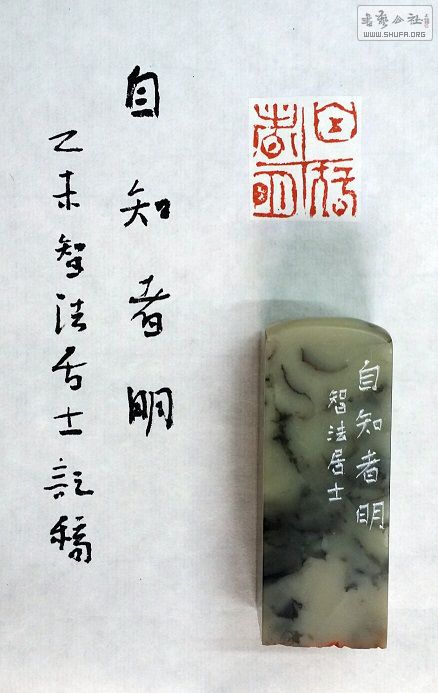 自知者明
乙未智法居士記稿
自知者明
自知者明
智法居士
書藝公社
WWW.SHUFA.ORG